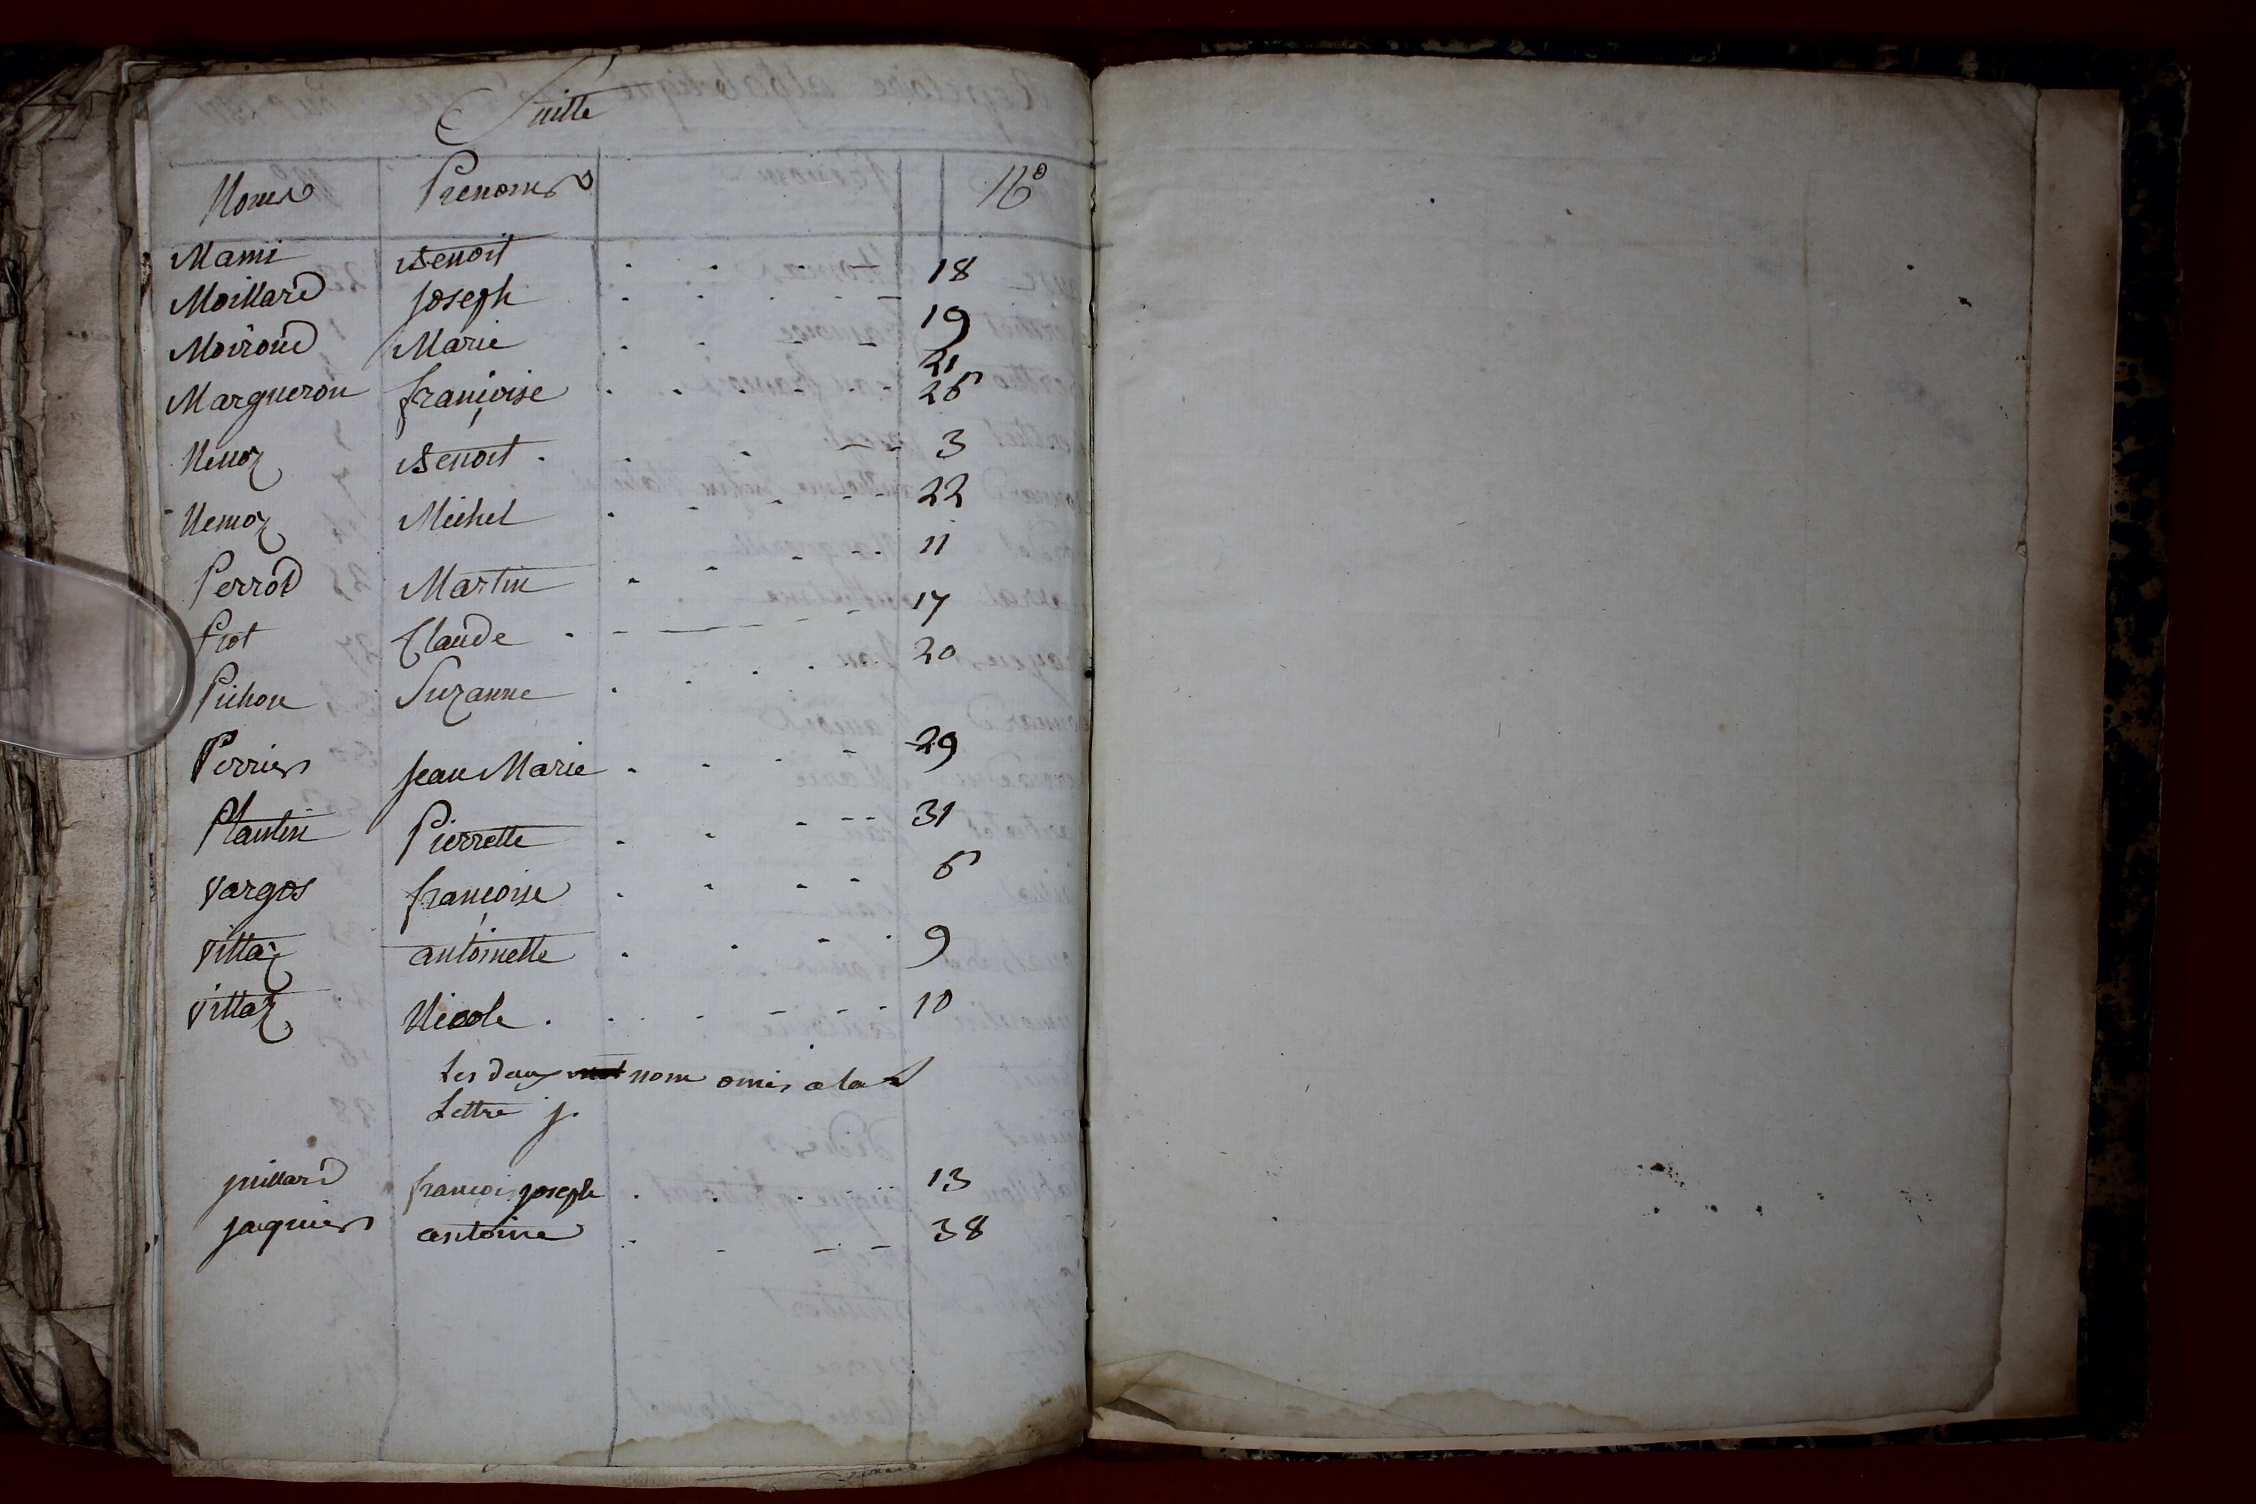 Suitte
Noms Prenoms No
Mami Benoit 18
Moillard joseph 19
Moiroud Marie 21
Margueron françoise 26
Nemoz Benoit 3
Nemoz Michel 22
Perrod Martin 11
Piot Claude 17
Pichon Suzanne 20
Perrier jean Marie 29
Plantin Pierrette 31
Vargos françoise 6
Vittaz antoinette 9
Vittaz Nicole 10
Les deux nom omis a la
Lettre j.
juillard françois joseph 13
jaquier antoine 38